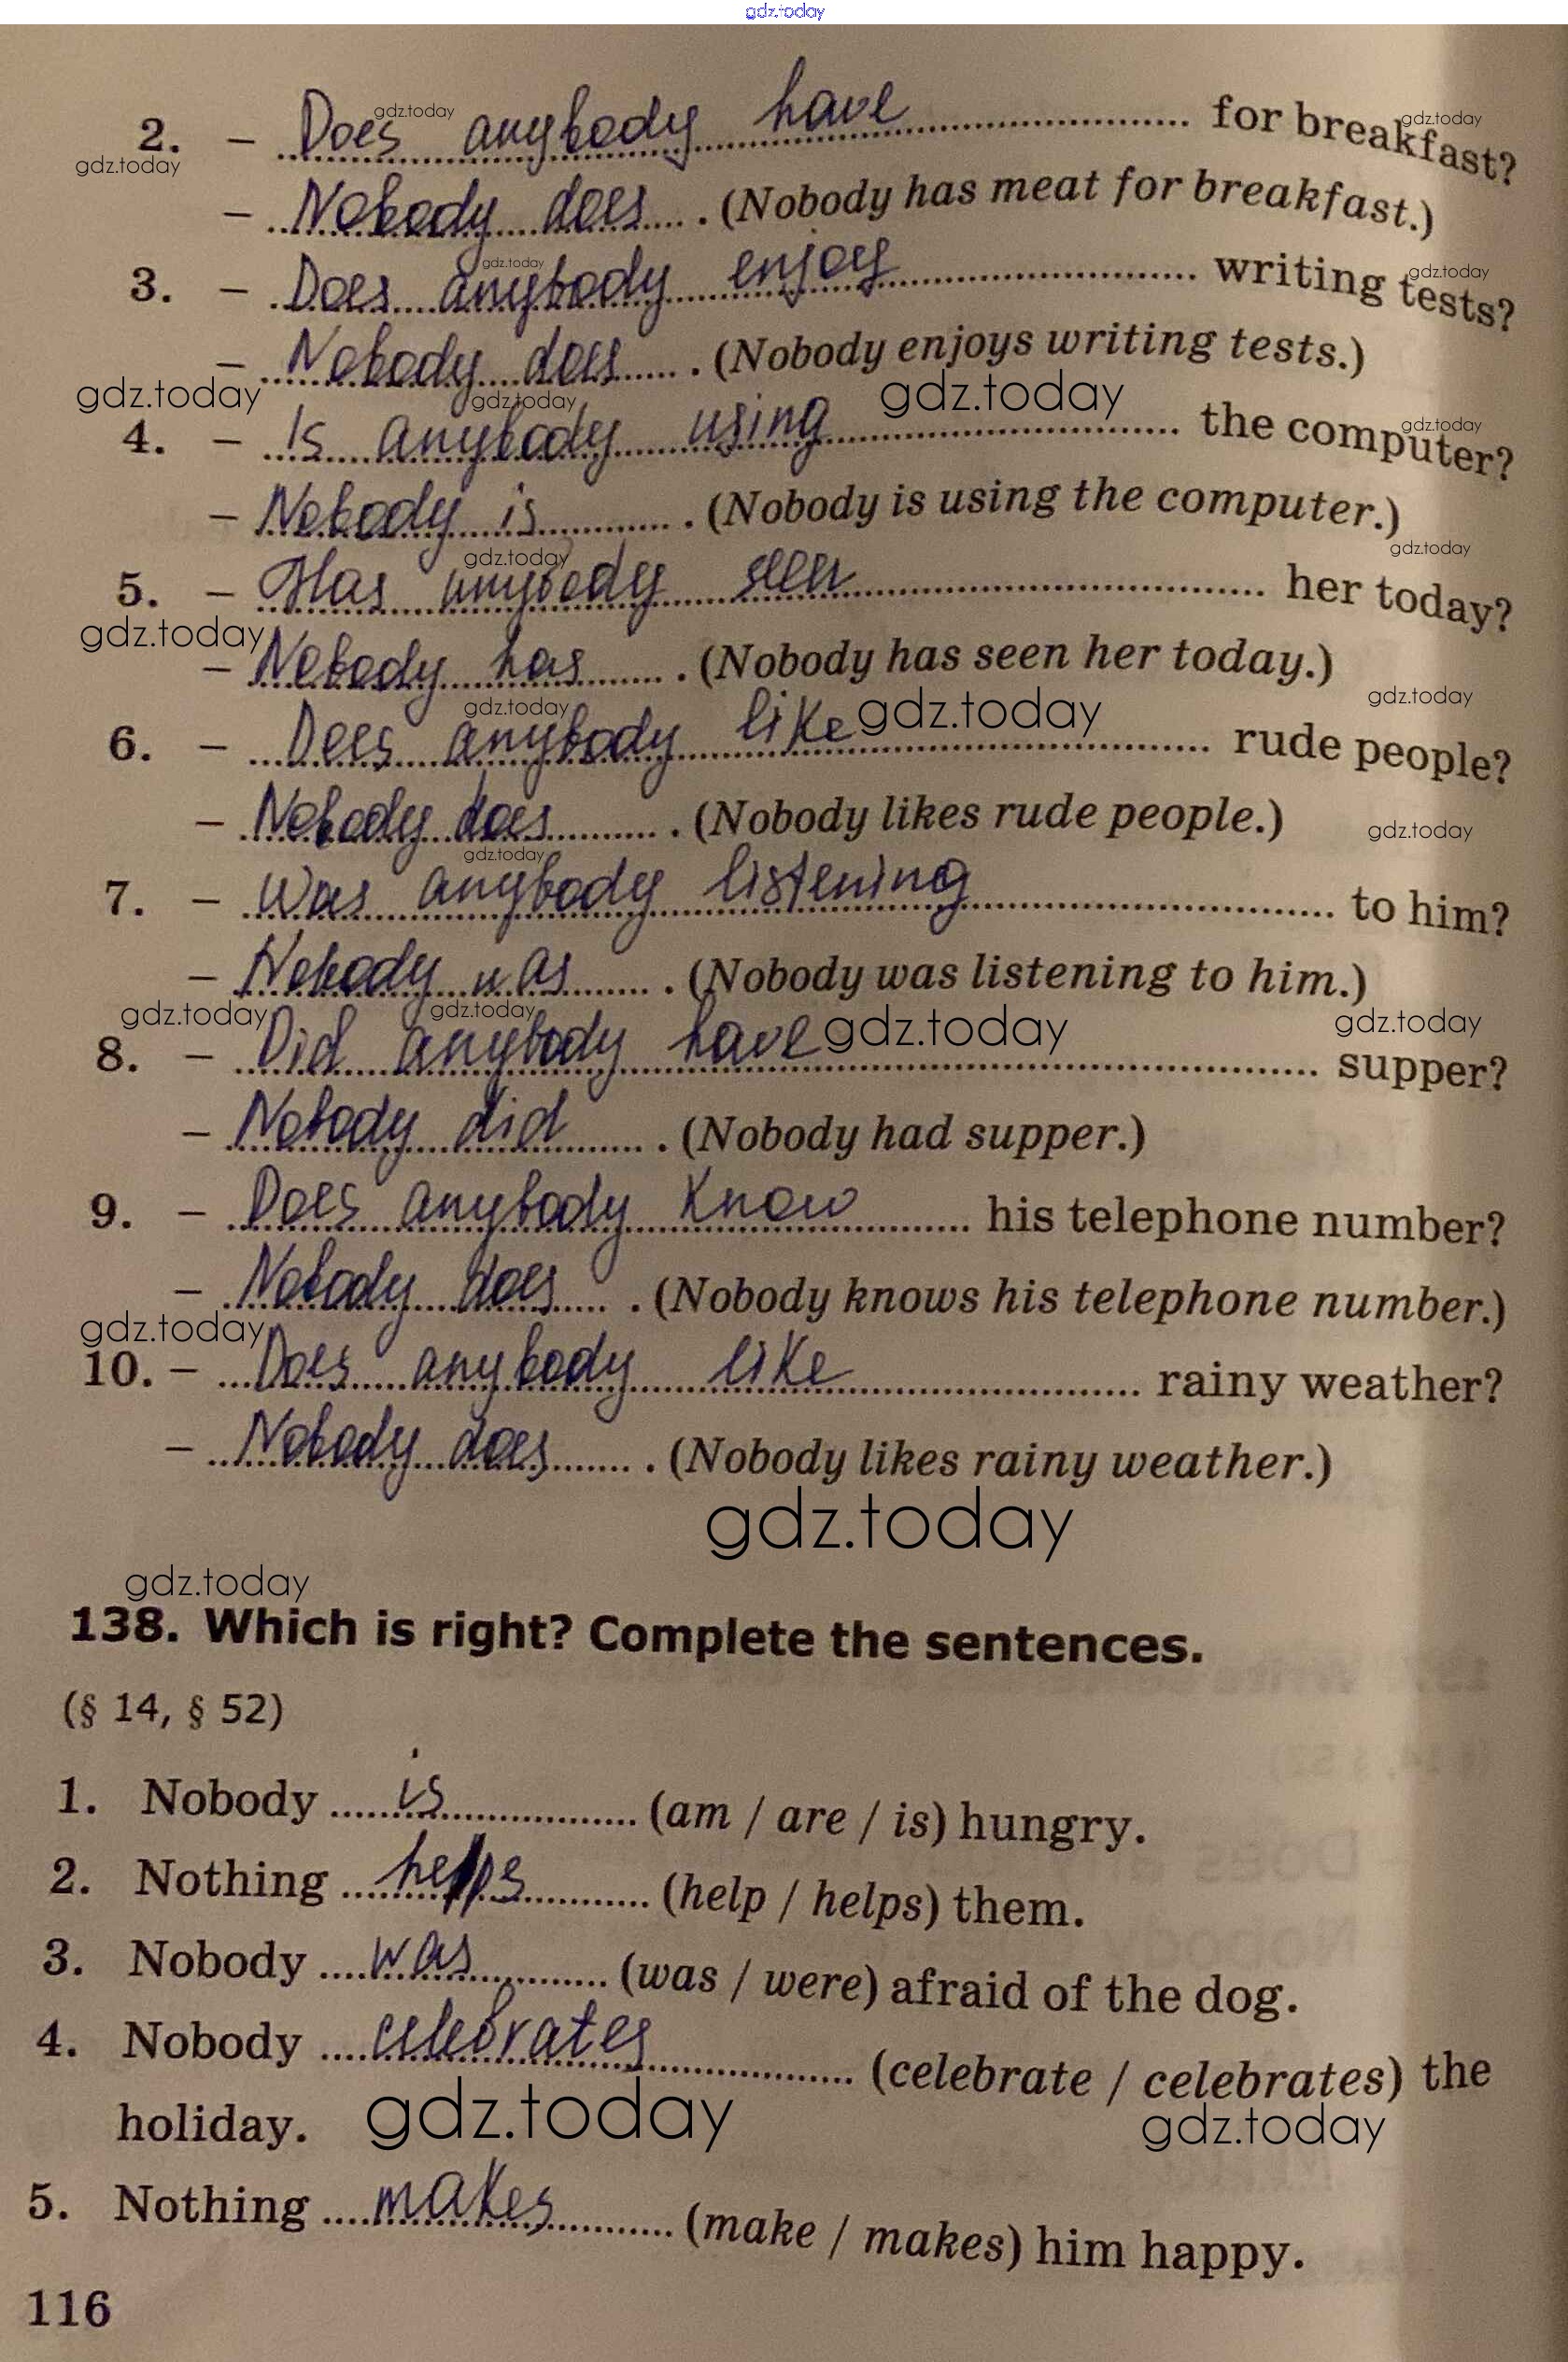 gdz.today
2. – Does anybody have for breakfast?
– Nobody does . (Nobody has meat for breakfast.)
3. – Does anybody enjoy writing tests?
– Nobody does . (Nobody enjoys writing tests.)
4. – Is anybody using the computer?
– Nobody is . (Nobody is using the computer.)
5. – Has anybody seen her today?
– Nobody has . (Nobody has seen her today.)
6. – Does anybody like rude people?
– Nobody does . (Nobody likes rude people.)
7. – Was anybody listening to him?
– Nobody was . (Nobody was listening to him.)
8. – Did anybody have supper?
– Nobody did . (Nobody had supper.)
9. – Does anybody know his telephone number?
– Nobody does . (Nobody knows his telephone number.)
10. – Does anybody like rainy weather?
– Nobody does . (Nobody likes rainy weather.)
gdz.today
gdz.today
138. Which is right? Complete the sentences.
(§ 14, § 52)
1. Nobody is (am / are / is) hungry.
2. Nothing helps (help / helps) them.
3. Nobody was (was / were) afraid of the dog.
4. Nobody celebrates (celebrate / celebrates) the
holiday. gdz.today gdz.today
5. Nothing makes (make / makes) him happy.
116